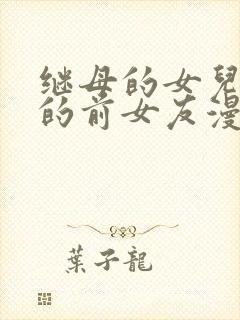 继母的女兒
的前女友漫
葉子龍